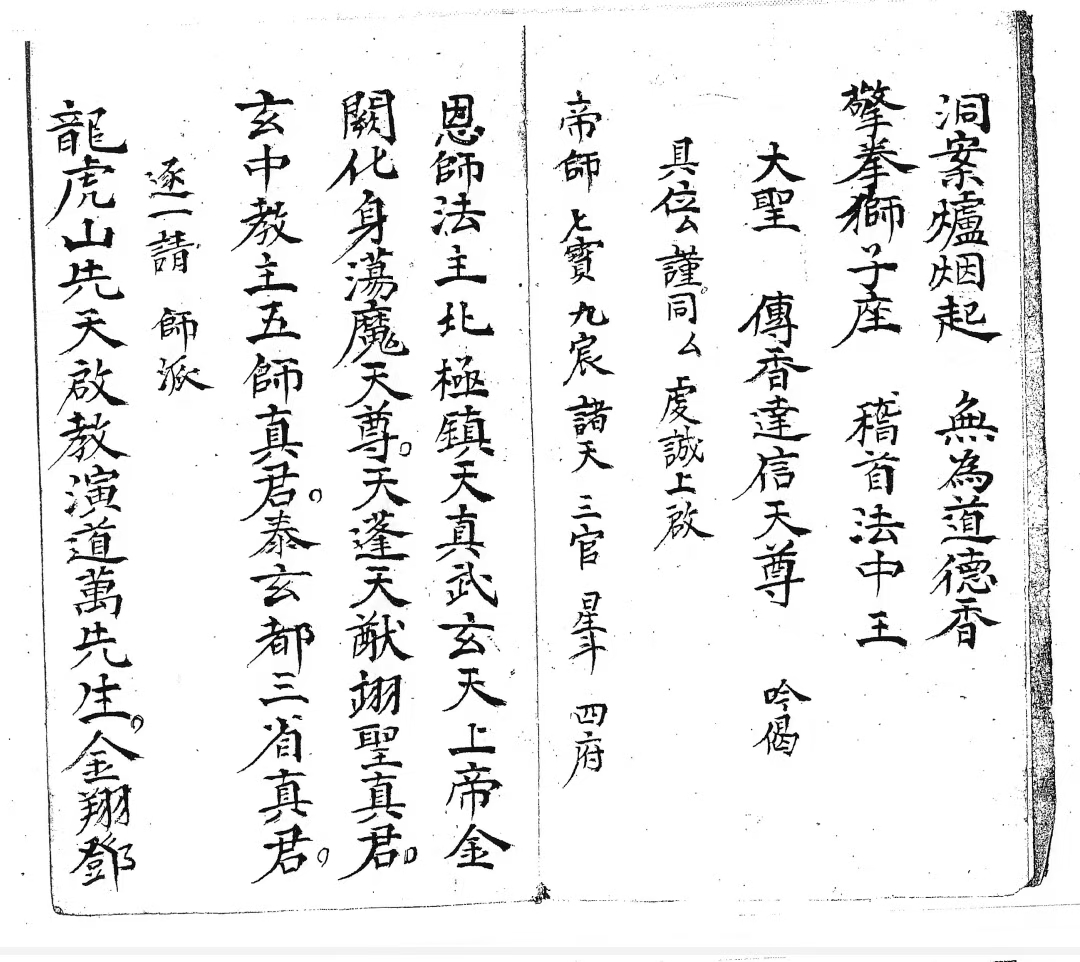 洞案爐烟起　無為道德香
擎拳獅子座　稽首法中王
大聖　傳香達信天尊　吟偈
具位厶謹。同厶虔誠上啟
帝師　七寶　九宸　諸天　三官　星斗　四府
恩師法主北極鎮天真武玄天上帝金
闕化身蕩魔天尊。天蓬天猷翊聖真君。
玄中教主五師真君。泰玄都三省真君。
逐一請　師派
龍虎山先天啟教演道萬先生。金翔鄧